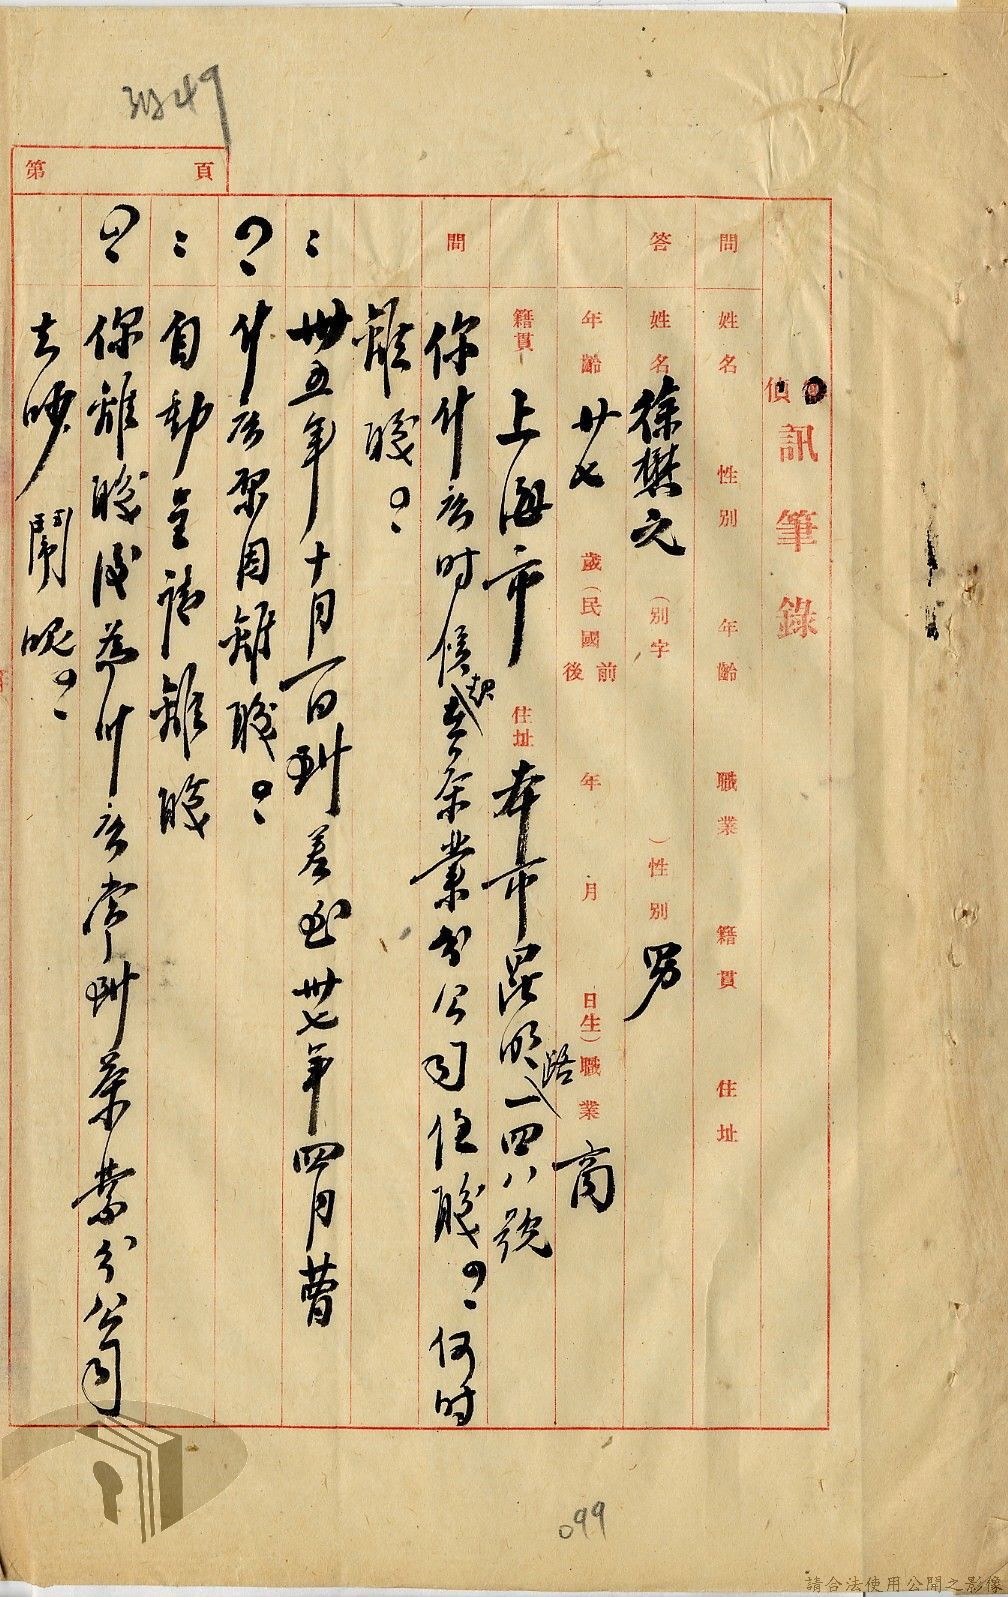 3849
第 頁
偵訊筆錄
問 姓名 性別 年齡 職業 籍貫 住址
答 姓名 徐懋元 （別字 ）性別 男
年齡 廿七 歲（民國 前後 年 月 日生）職業 商
籍貫 上海市 住址 本市昆明路一四八號
問 你什么时候起去茶業分公司任職？何时
離職？
： 卅五年十月一日到差至卅七年四月曹
？ 什么原因離職？
： 自動呈請離職
？ 你離職後為什么常到茶業分公司
去吵鬧呢？
099
請合法使用公開之影像